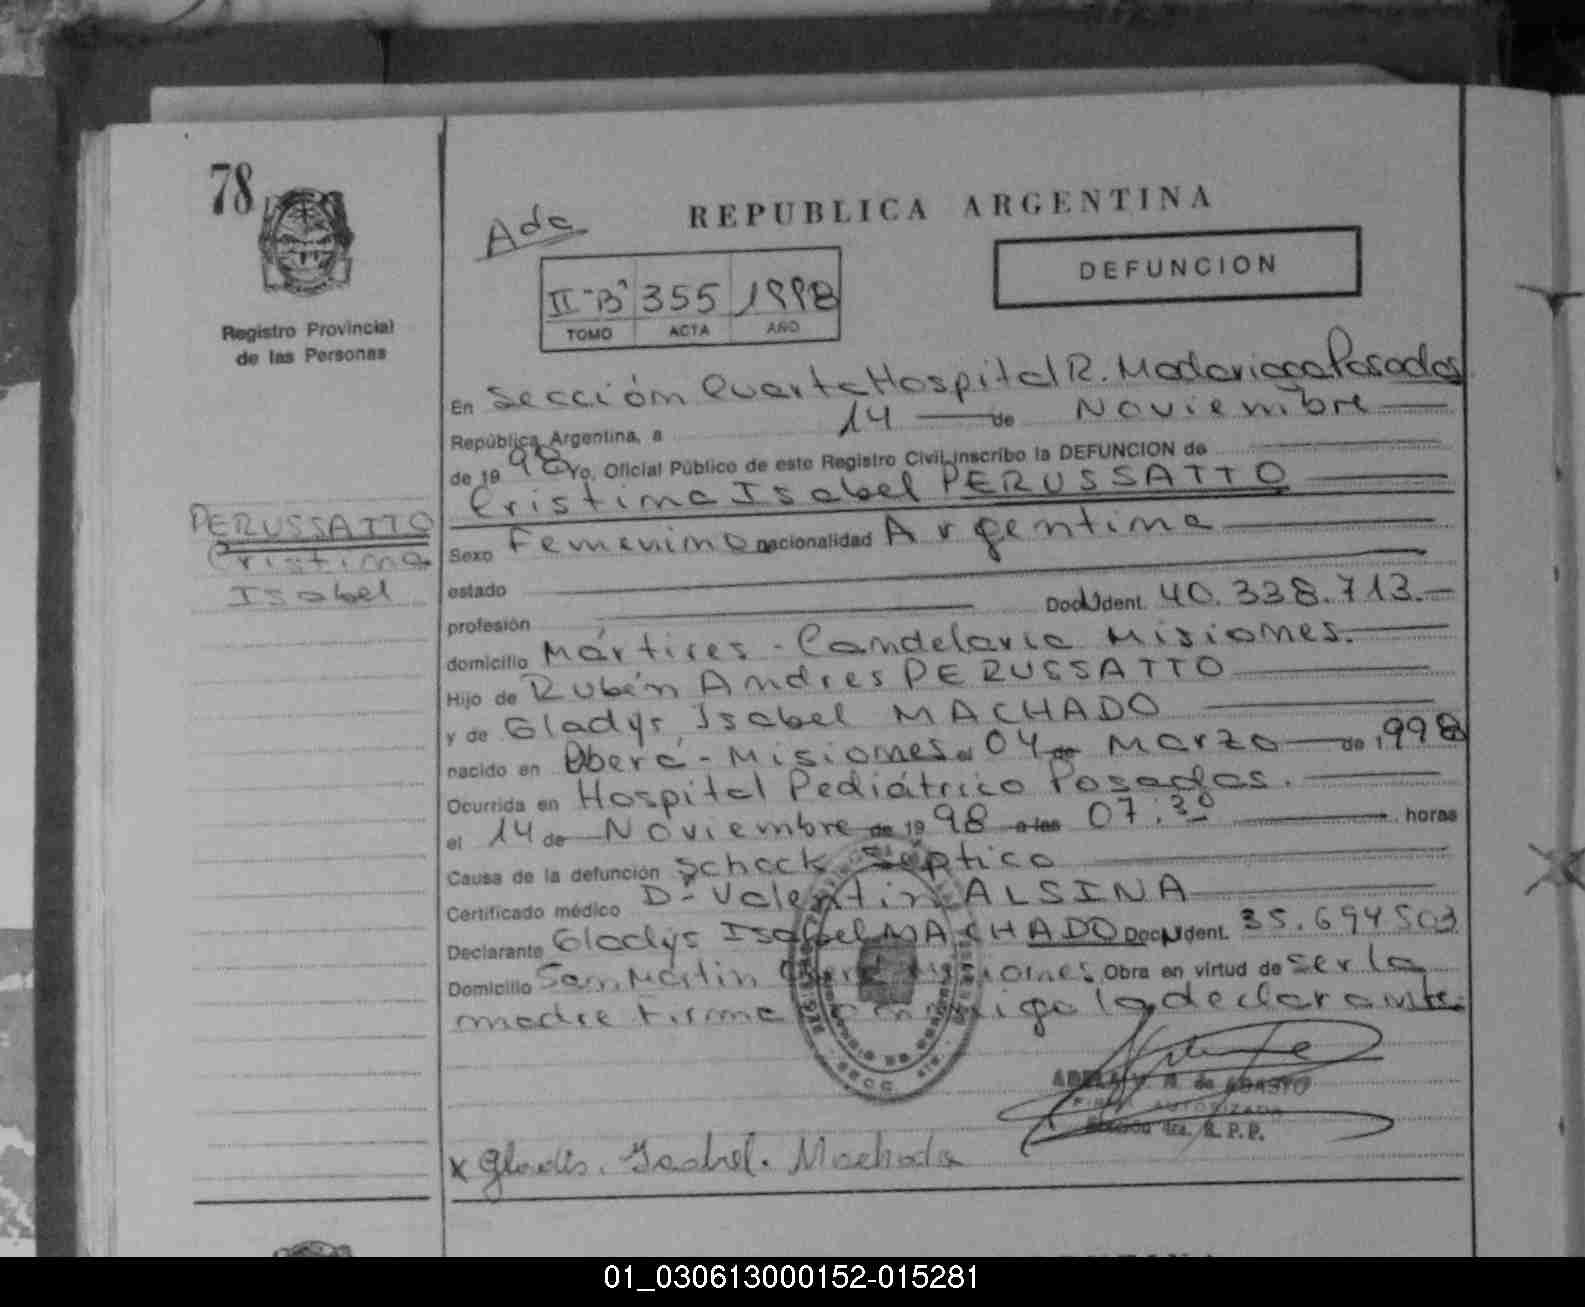 78
Registro Provincial
de las Personas
PERUSSATTO
Cristina
Isabel
Ada
REPUBLICA ARGENTINA
DEFUNCION
II-"B" 355 1998
TOMO ACTA AÑO
En Sección Cuarta Hospital R. Madariaga Posadas
República Argentina, a 14 de Noviembre
de 19 98 Yo, Oficial Público de este Registro Civil, inscribo la DEFUNCION de
Cristina Isabel PERUSSATTO
Sexo Femenino nacionalidad Argentina
estado
profesión Doc. Ident. 40.338.713.-
domicilio Mártires - Candelaria Misiones.
Hijo de Rubén Andres PERUSSATTO
y de Gladys Isabel MACHADO
nacido en Oberá - Misiones el 04 de Marzo de 1998
Ocurrida en Hospital Pediátrico Posadas.
el 14 de Noviembre de 19 98 a las 07:30 horas
Causa de la defunción Schock Septico
Certificado médico Dr. Valentin ALSINA
Declarante Gladys Isabel MACHADO Doc. Ident. 35.694503
Domicilio San Martin Misiones, Obra en virtud de ser la
madre firma conmigo la declarante.
FIRMA AUTORIZADA
R. P. P.
x Gladis. Isabel. Machado
01_030613000152-015281